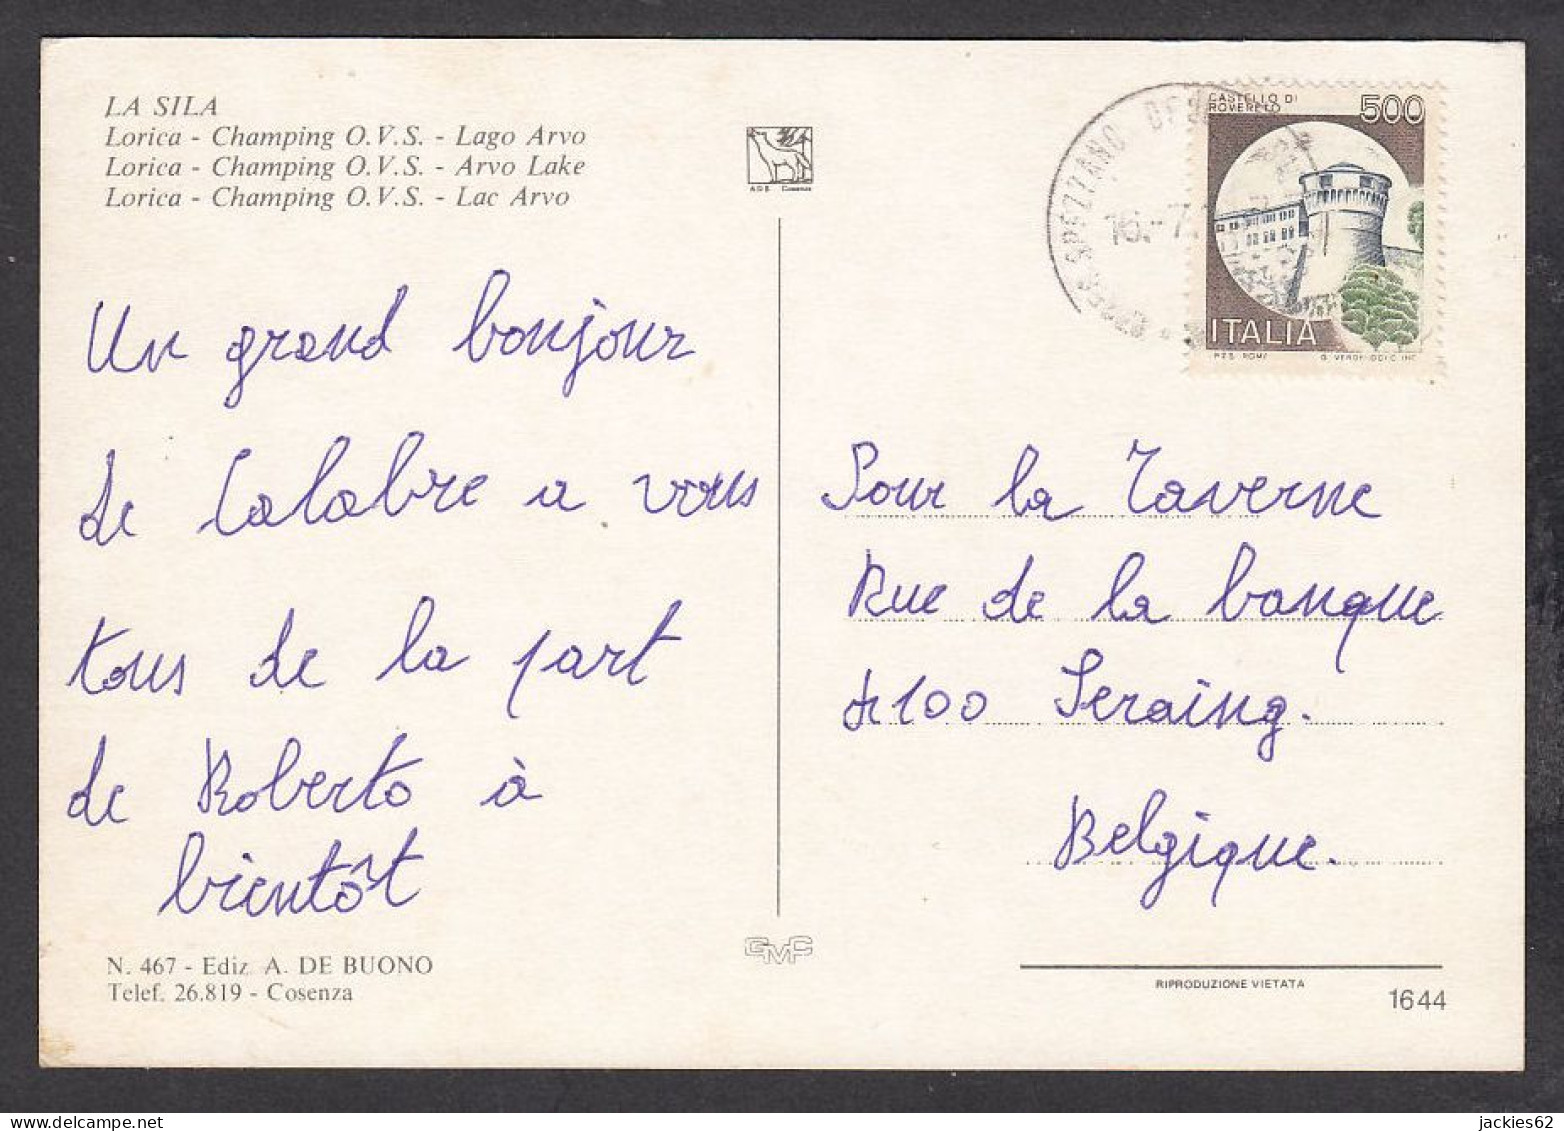 LA SILA
Lorica - Champing O.V.S. - Lago Arvo
Lorica - Champing O.V.S. - Arvo Lake
Lorica - Champing O.V.S. - Lac Arvo
A D B Cosenza
Un grand bonjour
de Calabre a vous
tous de la part
de Roberto à
bientôt
N. 467 - Ediz. A. DE BUONO
Telef. 26.819 - Cosenza
GMC
SPEZZANO
16.-7.
CASTELLO DI
ROVERETO
500
ITALIA
Pour la Taverne
Rue de la banque
4100 Seraing.
Belgique.
RIPRODUZIONE VIETATA
1644
jackies62